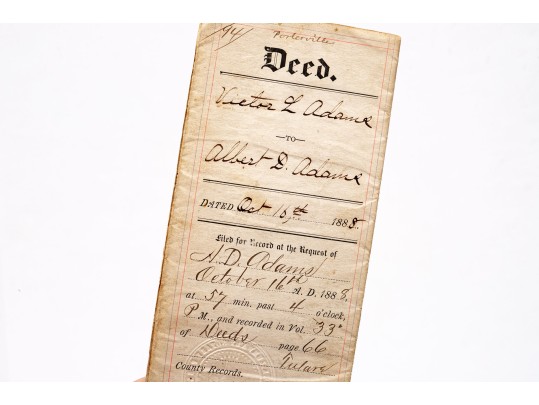 94
Porterville
Deed.
Victor L Adams
—TO—
Albert D. Adams
DATED Oct 15th 1888.
Filed for Record at the Request of
A. D. Adams
October 16th A. D. 1888
at 57 min. past 4 o'clock,
P M., and recorded in Vol. 33
of Deeds page 66
Tulare
County Records.